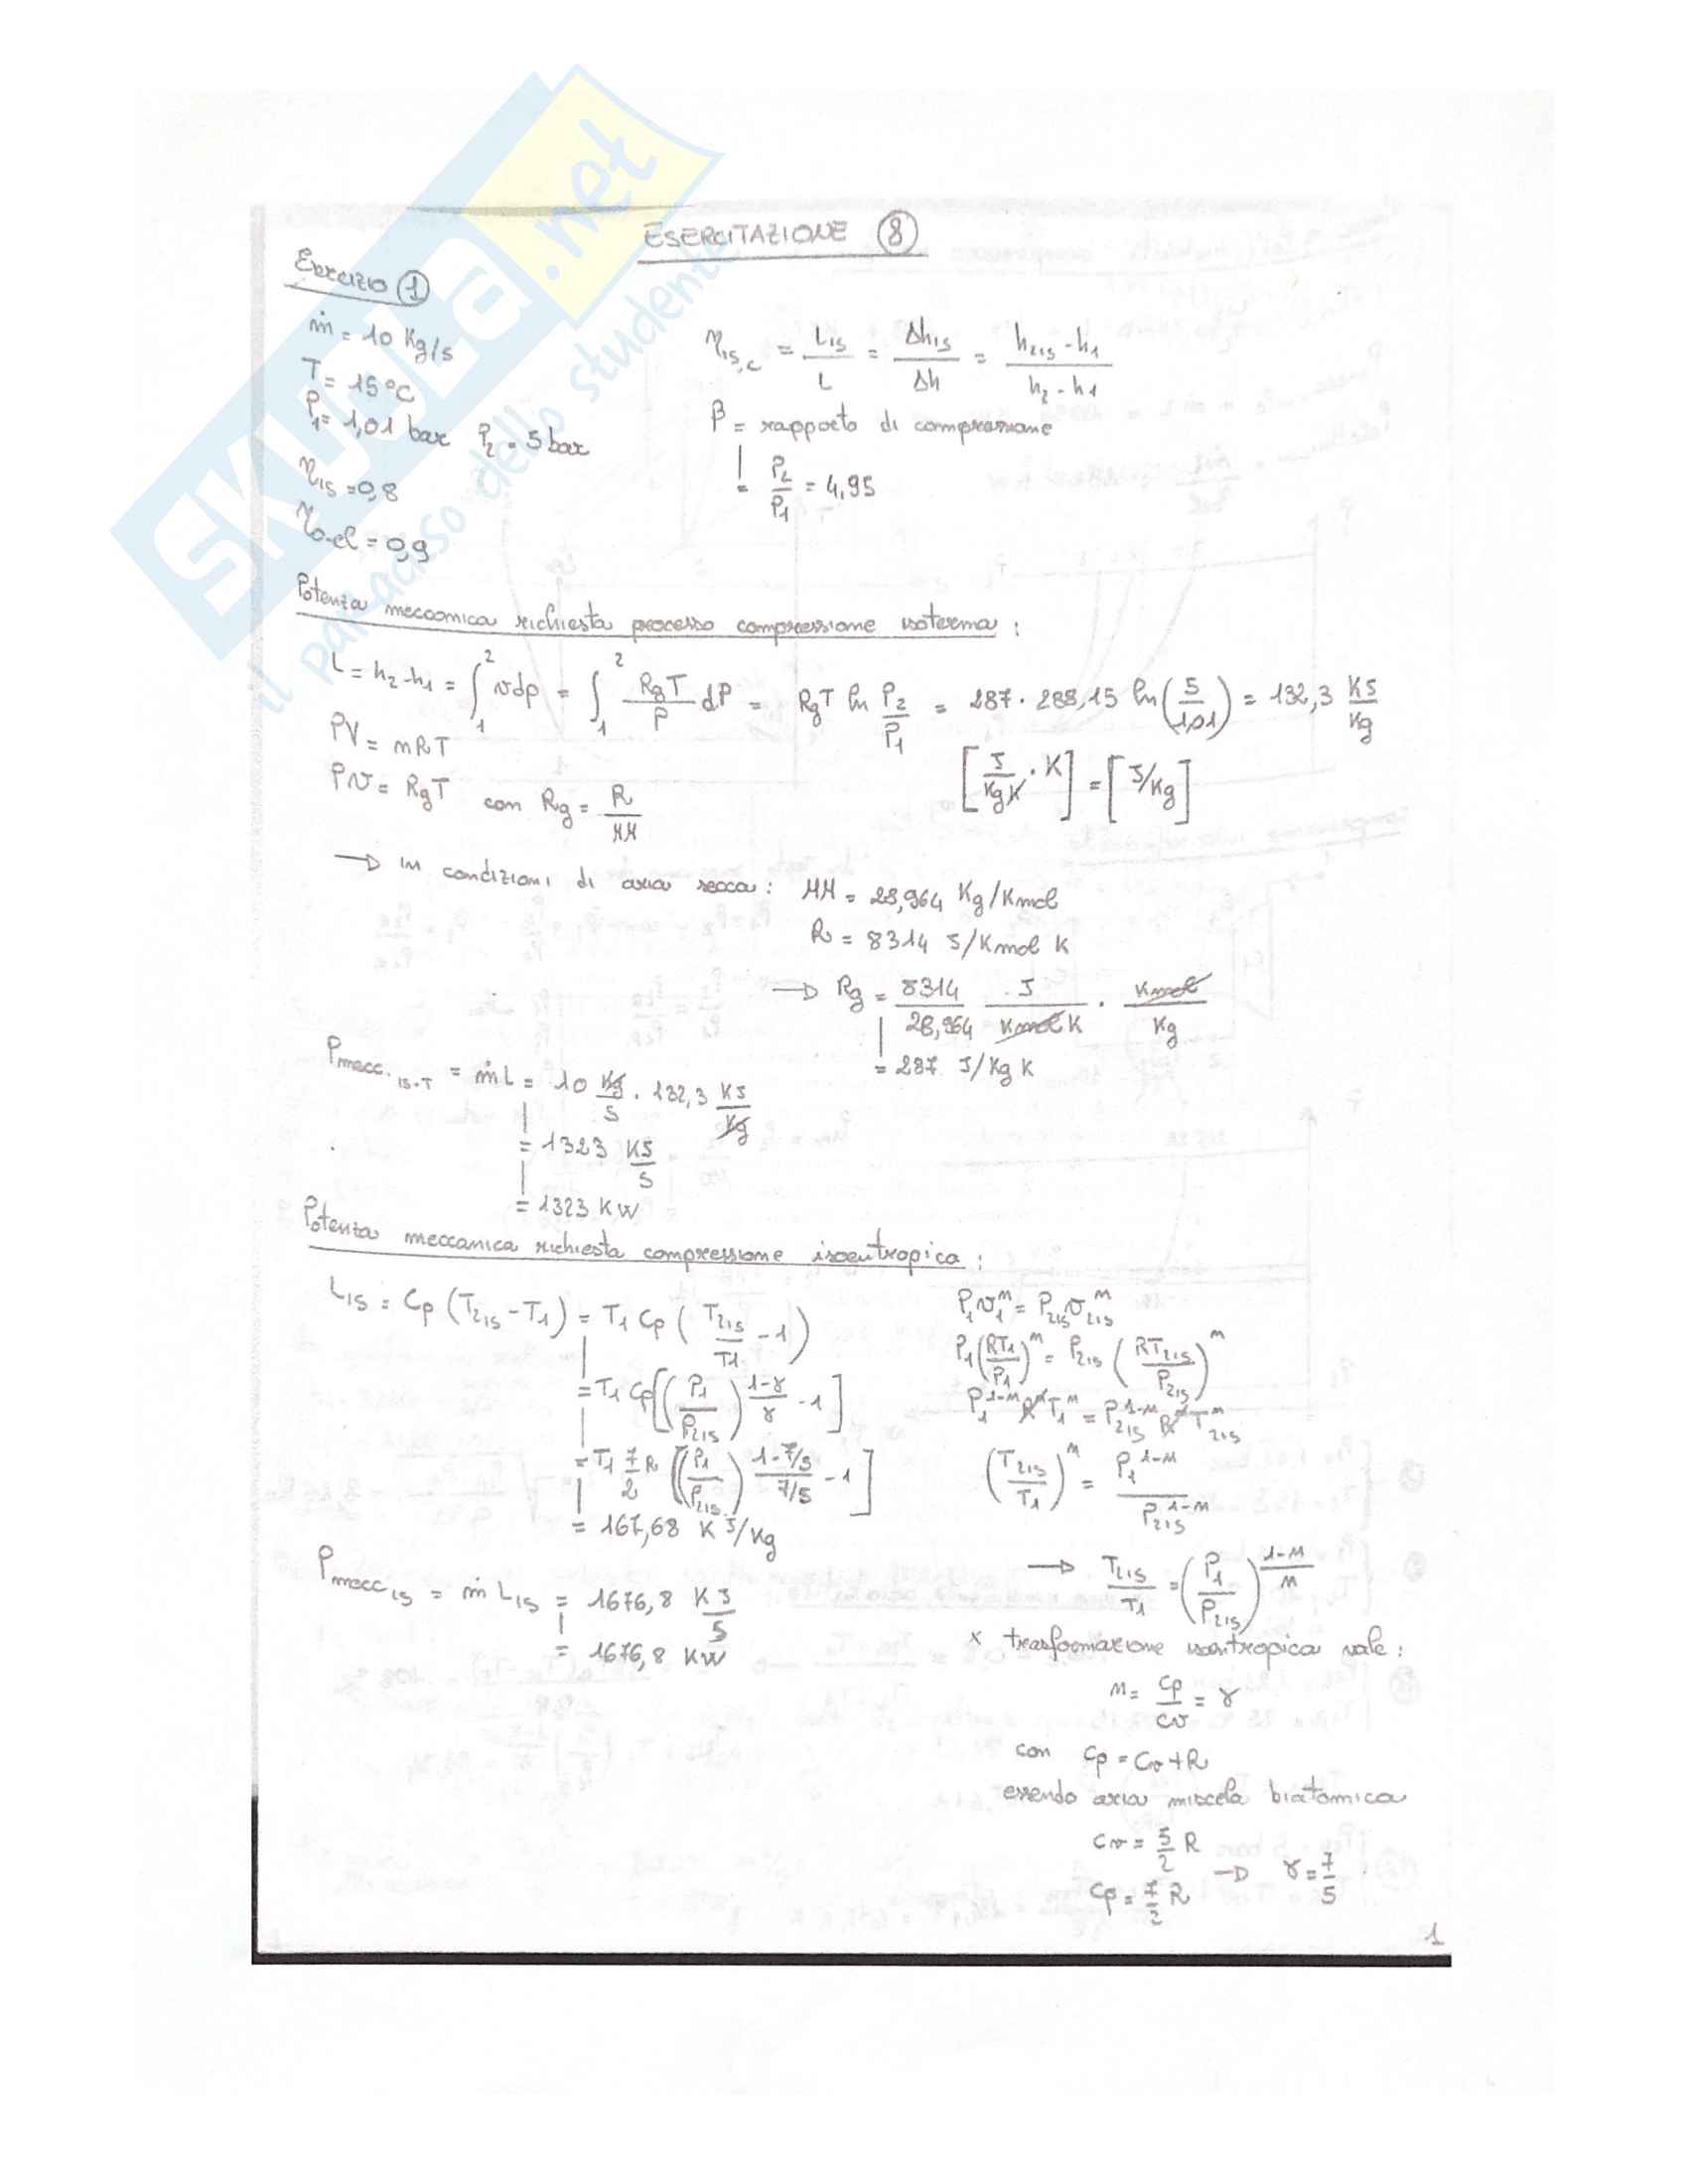 SKUOLA.net
il paradiso dello studente
ESERCITAZIONE 8
Esercizio 1
ṁ = 10 Kg/s
T = 15°C
P1 = 1,01 bar P2 = 5 bar
ηIS = 0,8
ηo-el = 0,9
ηIS,C = LIS / L = ΔhIS / Δh = (h2IS - h1) / (h2 - h1)
β = rapporto di compressione
= P2 / P1 = 4,95
Potenza meccanica richiesta processo compressione isoterma :
L = h2 - h1 = ∫₁² v dp = ∫₁² RgT / P dP = RgT ln P2 / P1 = 287 · 288,15 ln (5 / 1,01) = 132,3 KJ / Kg
[J / KgK · K] = [J/Kg]
PV = nRT
Pv = RgT con Rg = R / MM
→ in condizioni di aria secca : MM = 28,964 Kg/Kmol
R = 8314 J/Kmol K
→ Rg = 8314 / 28,964 J / Kmol K · Kmol / Kg
= 287 J/Kg K
Pmecc. IS-T = ṁL = 10 Kg / s · 132,3 KJ / Kg
= 1323 KJ / s
= 1323 KW
Potenza meccanica richiesta compressione isoentropica :
LIS = Cp (T2IS - T1) = T1 Cp (T2IS / T1 - 1)
= T1 Cp [(P1 / P2IS)^((1-γ)/γ) - 1]
= T1 7/2 R [(P1 / P2IS)^((1-7/5)/(7/5)) - 1]
= 167,68 KJ/Kg
Pmecc IS = ṁ LIS = 1676,8 KJ / S
= 1676,8 KW
P1 v1^n = P2IS v2IS^n
P1 (RT1 / P1)^n = P2IS (RT2IS / P2IS)^n
P1^(1-n) R^n T1^n = P2IS^(1-n) R^n T2IS^n
(T2IS / T1)^n = P1^(1-n) / P2IS^(1-n)
→ T2IS / T1 = (P1 / P2IS)^((1-n)/n)
x trasformazione isentropica vale :
n = cp / cv = γ
con cp = cv + R
essendo aria miscela biatomica
cv = 5/2 R
cp = 7/2 R → γ = 7/5
1